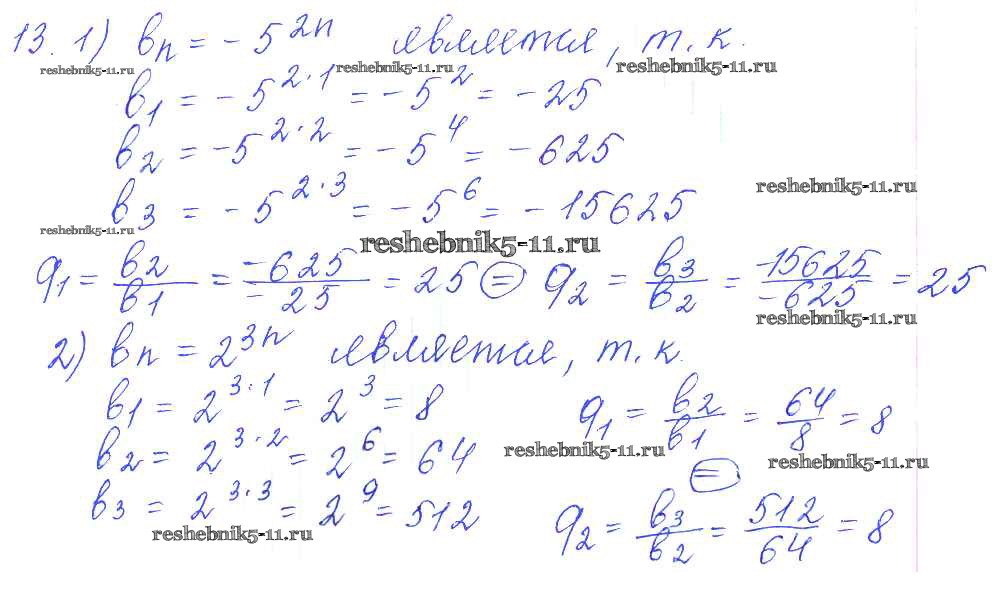 13. 1) bₙ = -5²ⁿ является, т.к.
reshebnik5-11.ru reshebnik5-11.ru reshebnik5-11.ru
b₁ = -5²·¹ = -5² = -25
b₂ = -5²·² = -5⁴ = -625
reshebnik5-11.ru
b₃ = -5²·³ = -5⁶ = -15625
reshebnik5-11.ru
reshebnik5-11.ru
q₁ = b₂/b₁ = -625/-25 = 25 = q₂ = b₃/b₂ = -15625/-625 = 25
reshebnik5-11.ru
2) bₙ = 2³ⁿ является, т.к.
b₁ = 2³·¹ = 2³ = 8 q₁ = b₂/b₁ = 64/8 = 8
b₂ = 2³·² = 2⁶ = 64 reshebnik5-11.ru = reshebnik5-11.ru
b₃ = 2³·³ = 2⁹ = 512 q₂ = b₃/b₂ = 512/64 = 8
reshebnik5-11.ru